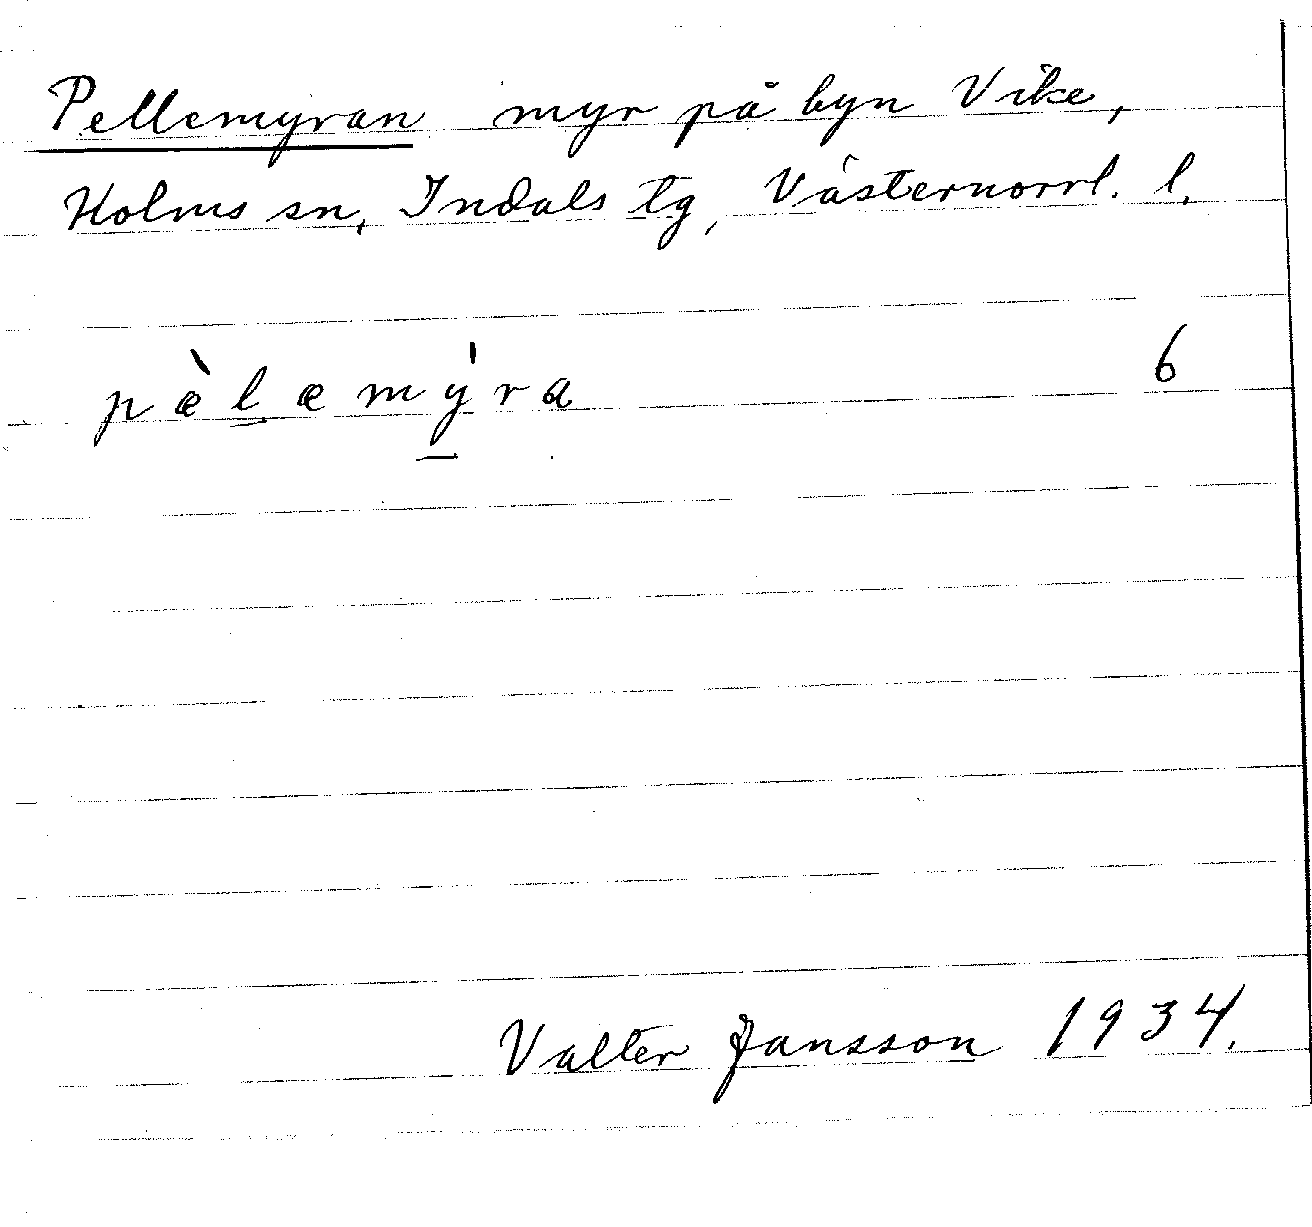 Pellemyran myr på byn Vike,
Holms sn, Indals tg, Västernorrl. l.
pæ̀l̠æmý̠ra 6
Valter Jansson 1934.